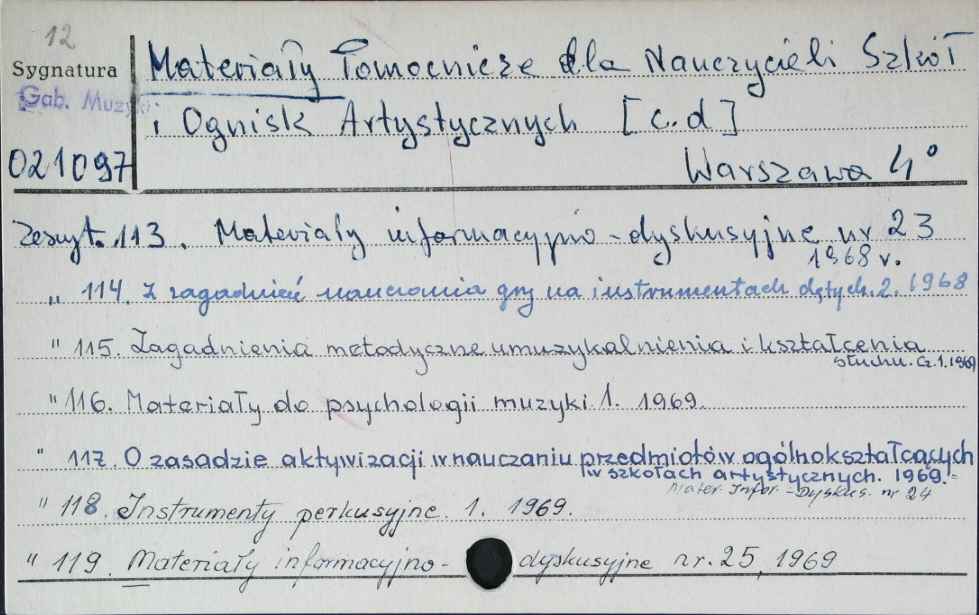 12
Sygnatura
Gab. Muzyki
021097
Materiały Pomocnicze dla Nauczycieli Szkół
i Ognisk Artystycznych [c.d]
Warszawa 4°
Zeszyt. 113. Materiały informacyjno-dyskusyjne nr 23
1968 r.
„ 114. Z zagadnień nauczania gry na instrumentach dętych. 2. 1968
" 115. Zagadnienia metodyczne umuzykalnienia i kształcenia
słuchu. Cz. 1. 1969
" 116. Materiały do psychologii muzyki 1. 1969.
" 117. O zasadzie aktywizacji w nauczaniu przedmiotów ogólnokształcących
w szkołach artystycznych. 1969.=
Mater. Infor.-Dyskus. nr 24
" 118. Instrumenty perkusyjne. 1. 1969.
" 119. Materiały informacyjno- dyskusyjne nr. 25, 1969